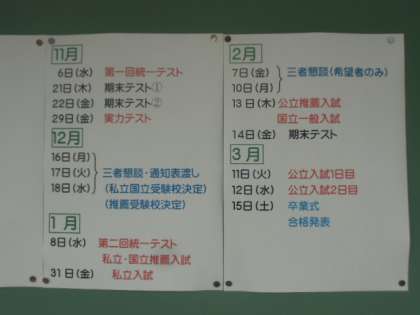 11月
6日(水) 第一回統一テスト
21日(木) 期末テスト①
22日(金) 期末テスト②
29日(金) 実力テスト
12月
16日(月)
17日(火) 三者懇談・通知表渡し
18日(水) (私立国立受験校決定)
(推薦受験校決定)
1月
8日(水) 第二回統一テスト
私立・国立推薦入試
31日(金) 私立入試
2月
7日(金) 三者懇談(希望者のみ)
10日(月)
13日(木) 公立推薦入試
国立一般入試
14日(金) 期末テスト
3月
11日(火) 公立入試1日目
12日(水) 公立入試2日目
15日(土) 卒業式
合格発表